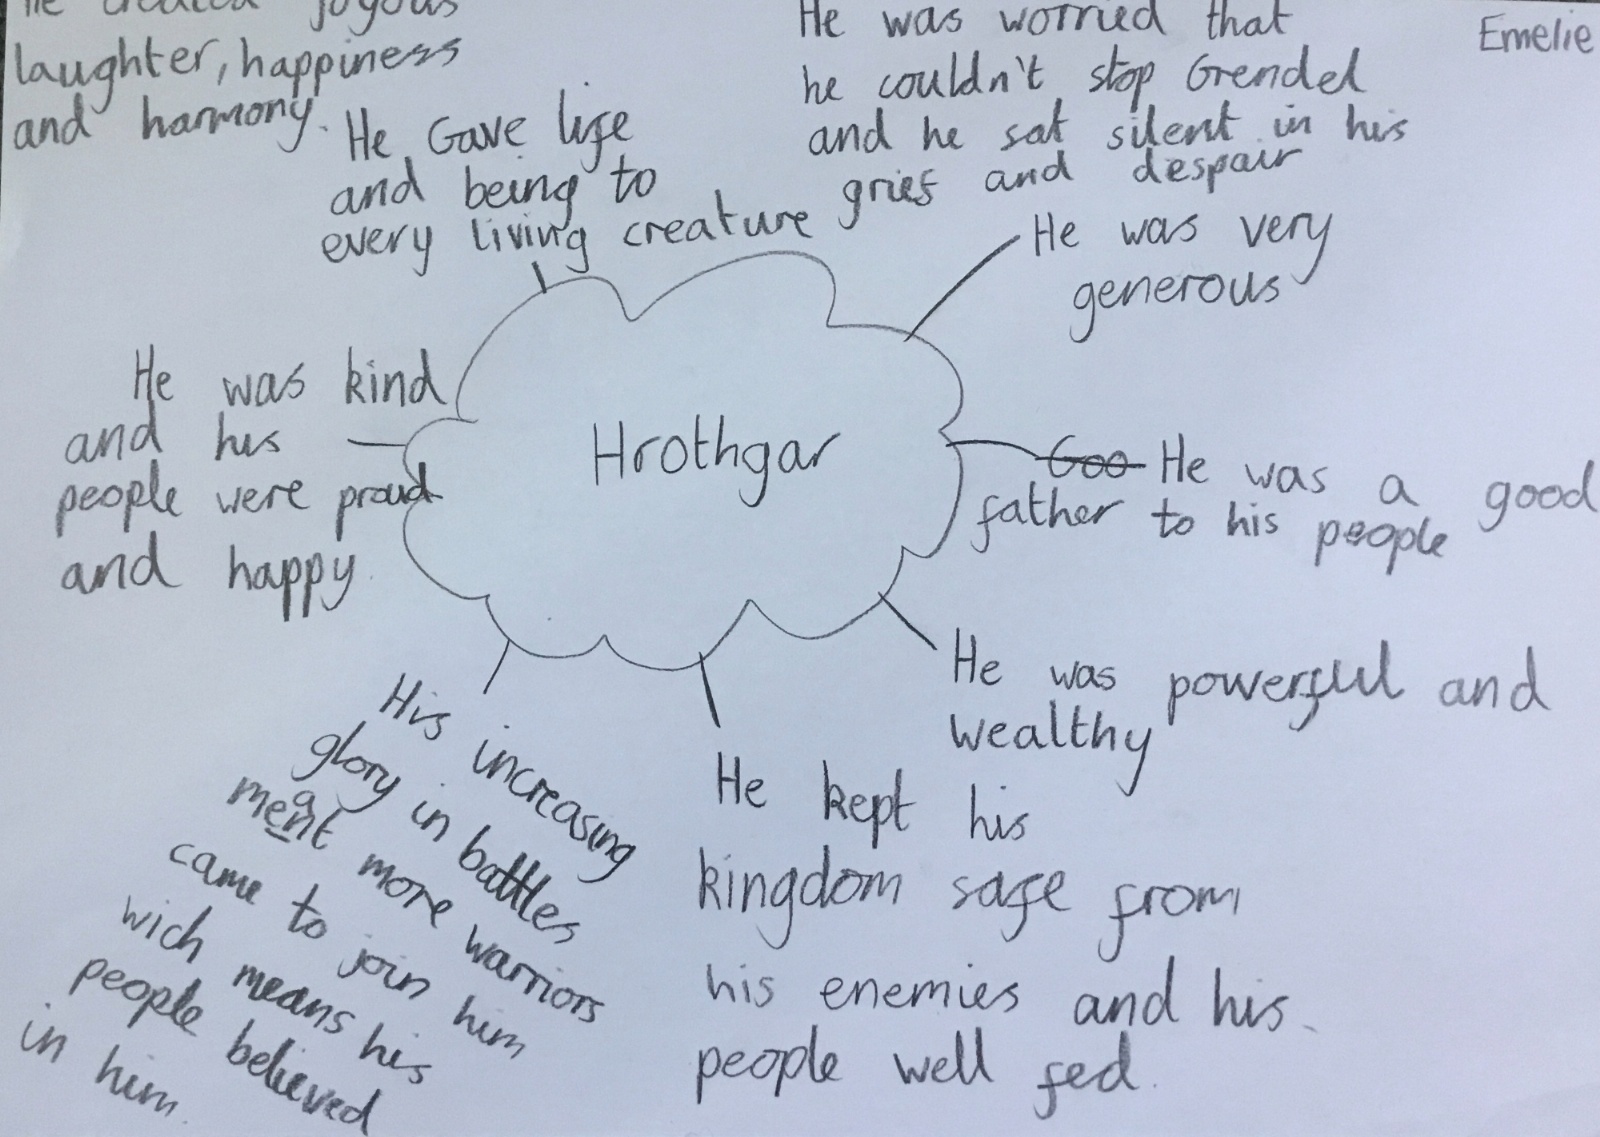 He created joyous
laughter, happiness
and harmony.
He Gave life
and being to
every living creature
He was worried that
he couldn't stop Grendel
and he sat silent in his
grief and despair
Emelie
He was very
generous
He was kind
and his
people were proud
and happy.
Hrothgar
Goo He was a good
father to his people
He was powerful and
wealthy
His increasing
glory in battles
meant more warriors
came to join him
wich means his
people believed
in him.
He kept his
kingdom safe from
his enemies and his
people well fed.